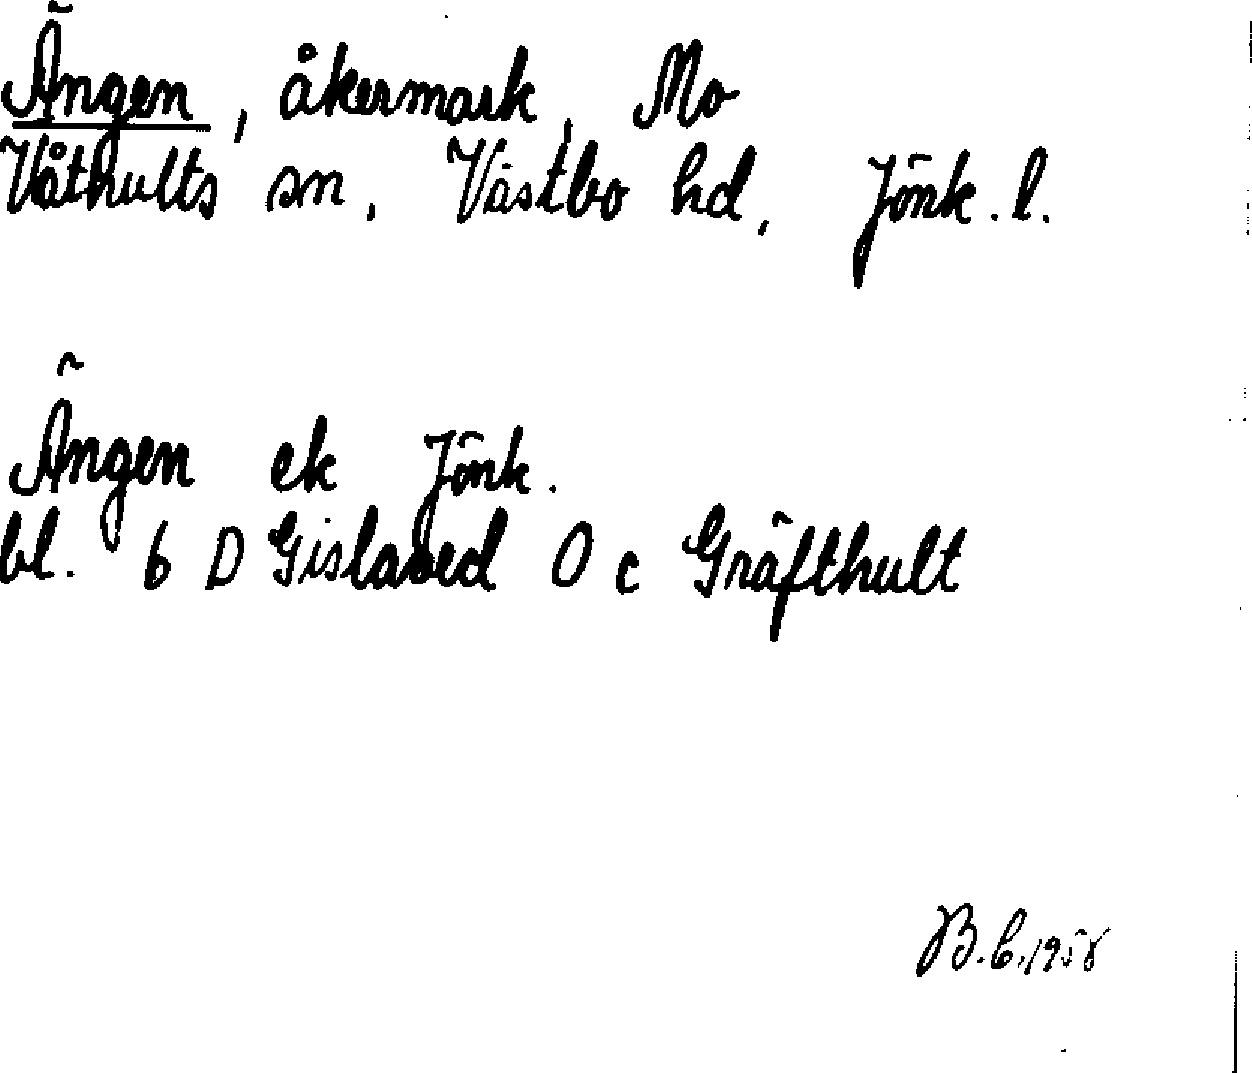 Ängen, åkermark, Mo
Våthults sn, Västbo hd, Jönk. l.
Ängen ek Jönk.
bl. 6 D Gislaved O c Gräfthult
B.C. 1958